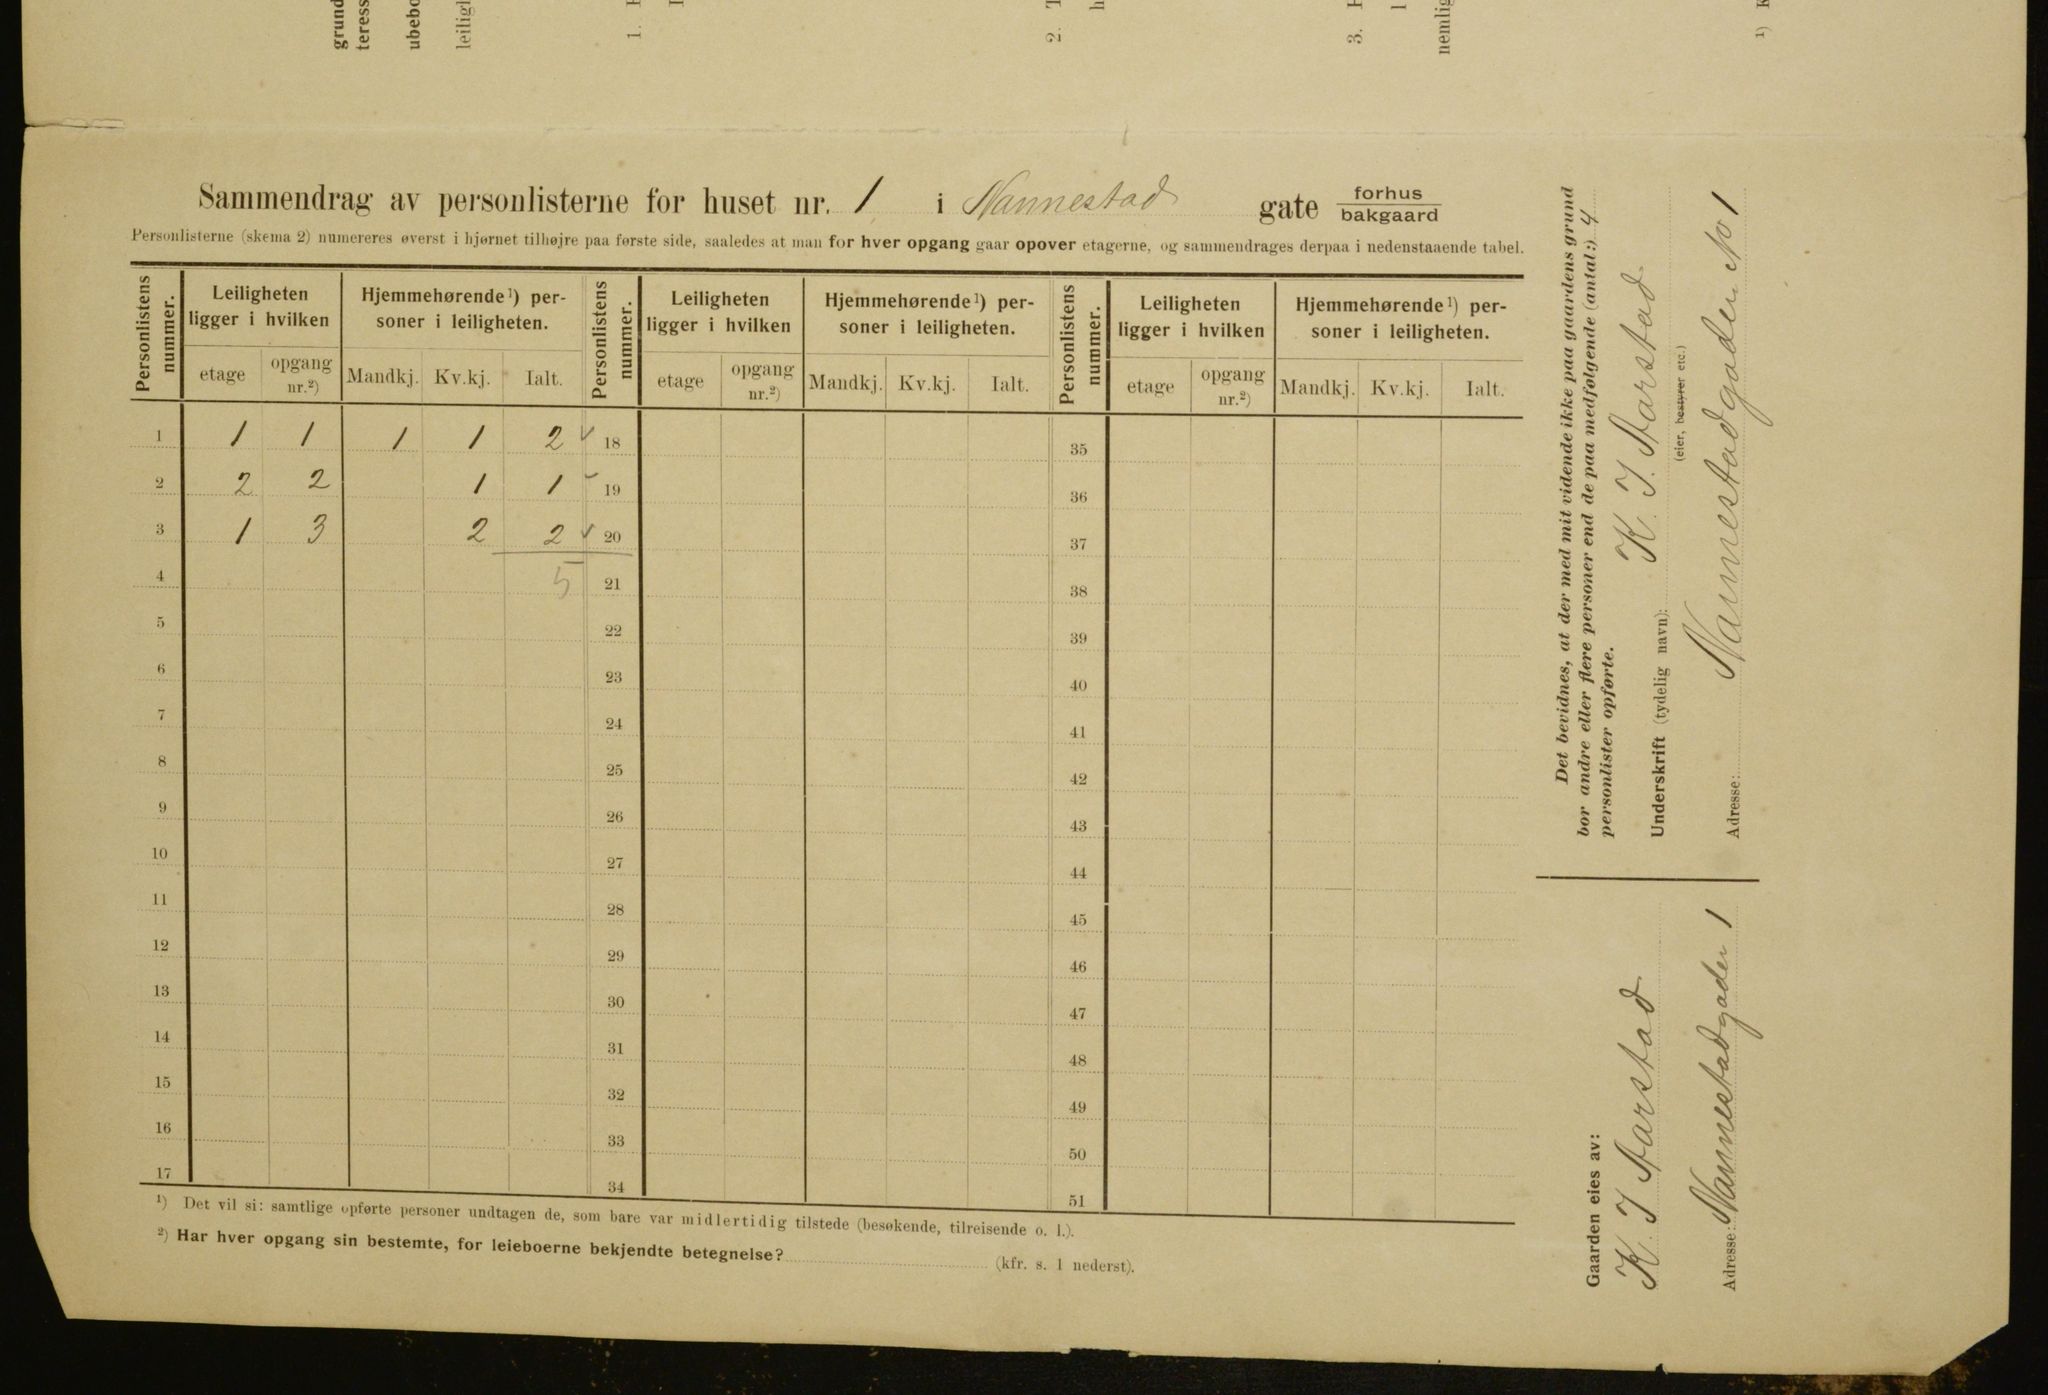 grund
teress
ubebo
leiligh
1.
2. T
h
3.
nemlig
1)
Sammendrag av personlisterne for huset nr. 1 i Nannestad gate forhus
bakgaard
Personlisterne (skema 2) numereres øverst i hjørnet tilhøjre paa første side, saaledes at man for hver opgang gaar opover etagerne, og sammendrages derpaa i nedenstaaende tabel.
Personlistens nummer. Leiligheten ligger i hvilken Hjemmehørende¹) personer i leiligheten. Personlistens nummer. Leiligheten ligger i hvilken Hjemmehørende¹) personer i leiligheten. Personlistens nummer. Leiligheten ligger i hvilken Hjemmehørende¹) personer i leiligheten.
etage opgang nr.²) Mandkj. Kv.kj. Ialt. etage opgang nr.²) Mandkj. Kv.kj. Ialt. etage opgang nr.²) Mandkj. Kv.kj. Ialt.
1 1 1 1 1 2 ✓ 18 35
2 2 2 1 1 19 36
3 1 3 2 2 ✓ 20 37
4 5 21 38
5 22 39
6 23 40
7 24 41
8 25 42
9 26 43
10 27 44
11 28 45
12 29 46
13 30 47
14 31 48
15 32 49
16 33 50
17 34 51
¹) Det vil si: samtlige opførte personer undtagen de, som bare var midlertidig tilstede (besøkende, tilreisende o. l.).
²) Har hver opgang sin bestemte, for leieboerne bekjendte betegnelse? (kfr. s. 1 nederst).
Det bevidnes, at der med mit vidende ikke paa gaardens grund
bor andre eller flere personer end de paa medfølgende (antal:) 4
personlister opførte.
Underskrift (tydelig navn): K. J. Aarstad
(eier, bestyrer etc.)
Adresse: Nannestadgaden No 1
Gaarden eies av:
K. J Aarstad
Adresse: Nannestadgaden 1